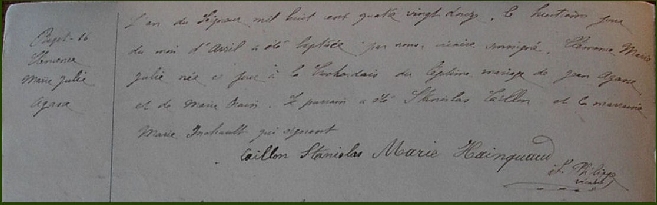 Bapt. 16
Clémence
Marie Julie
Agasse
L'an du Seigneur mil huit cent quatre vingt douze, le huitième jour
du mois d'Avril a été baptisée par nous, vicaire soussigné, Clémence Marie
Julie née ce jour à la du légitime mariage de Jean Agasse
et de Marie Le parrain a été Stanislas Taillon et la marraine
Marie qui signent
Taillon Stanislas Marie Hainguaud